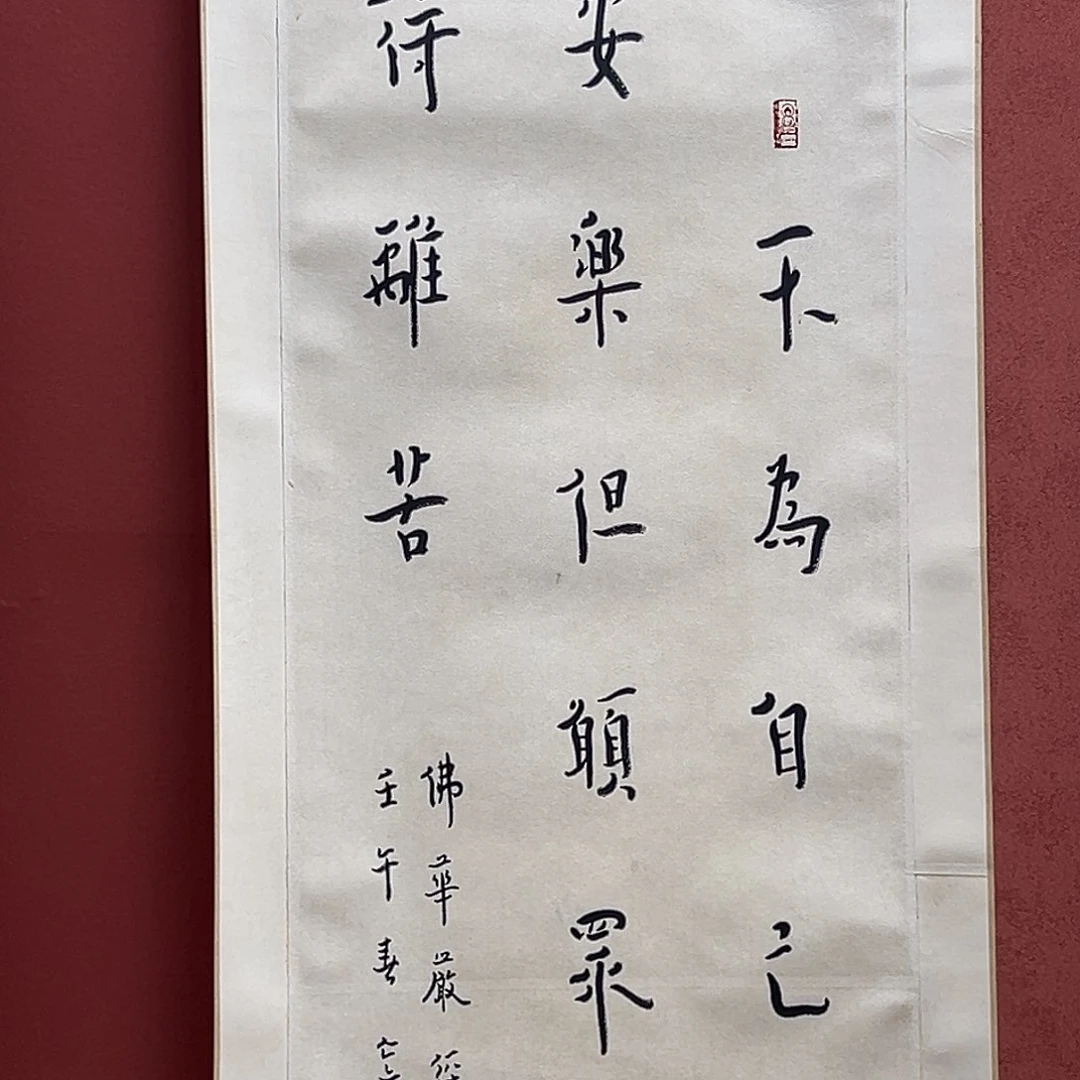 不為自己
安樂但願眾
得離苦
佛華嚴經
壬午春